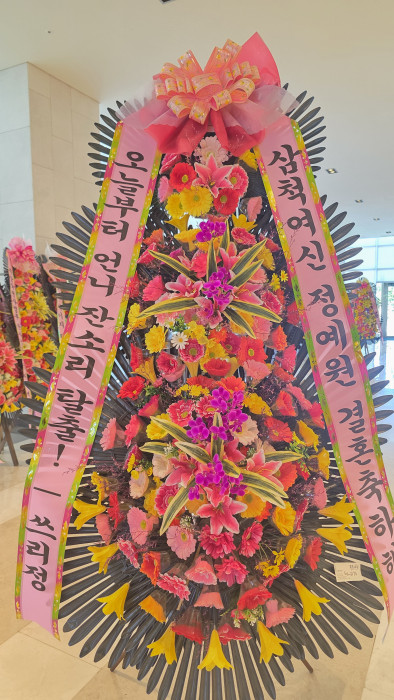 오늘부터 언니 잔소리 탈출! - 쓰리정
삼척여신 정예원 결혼축하해